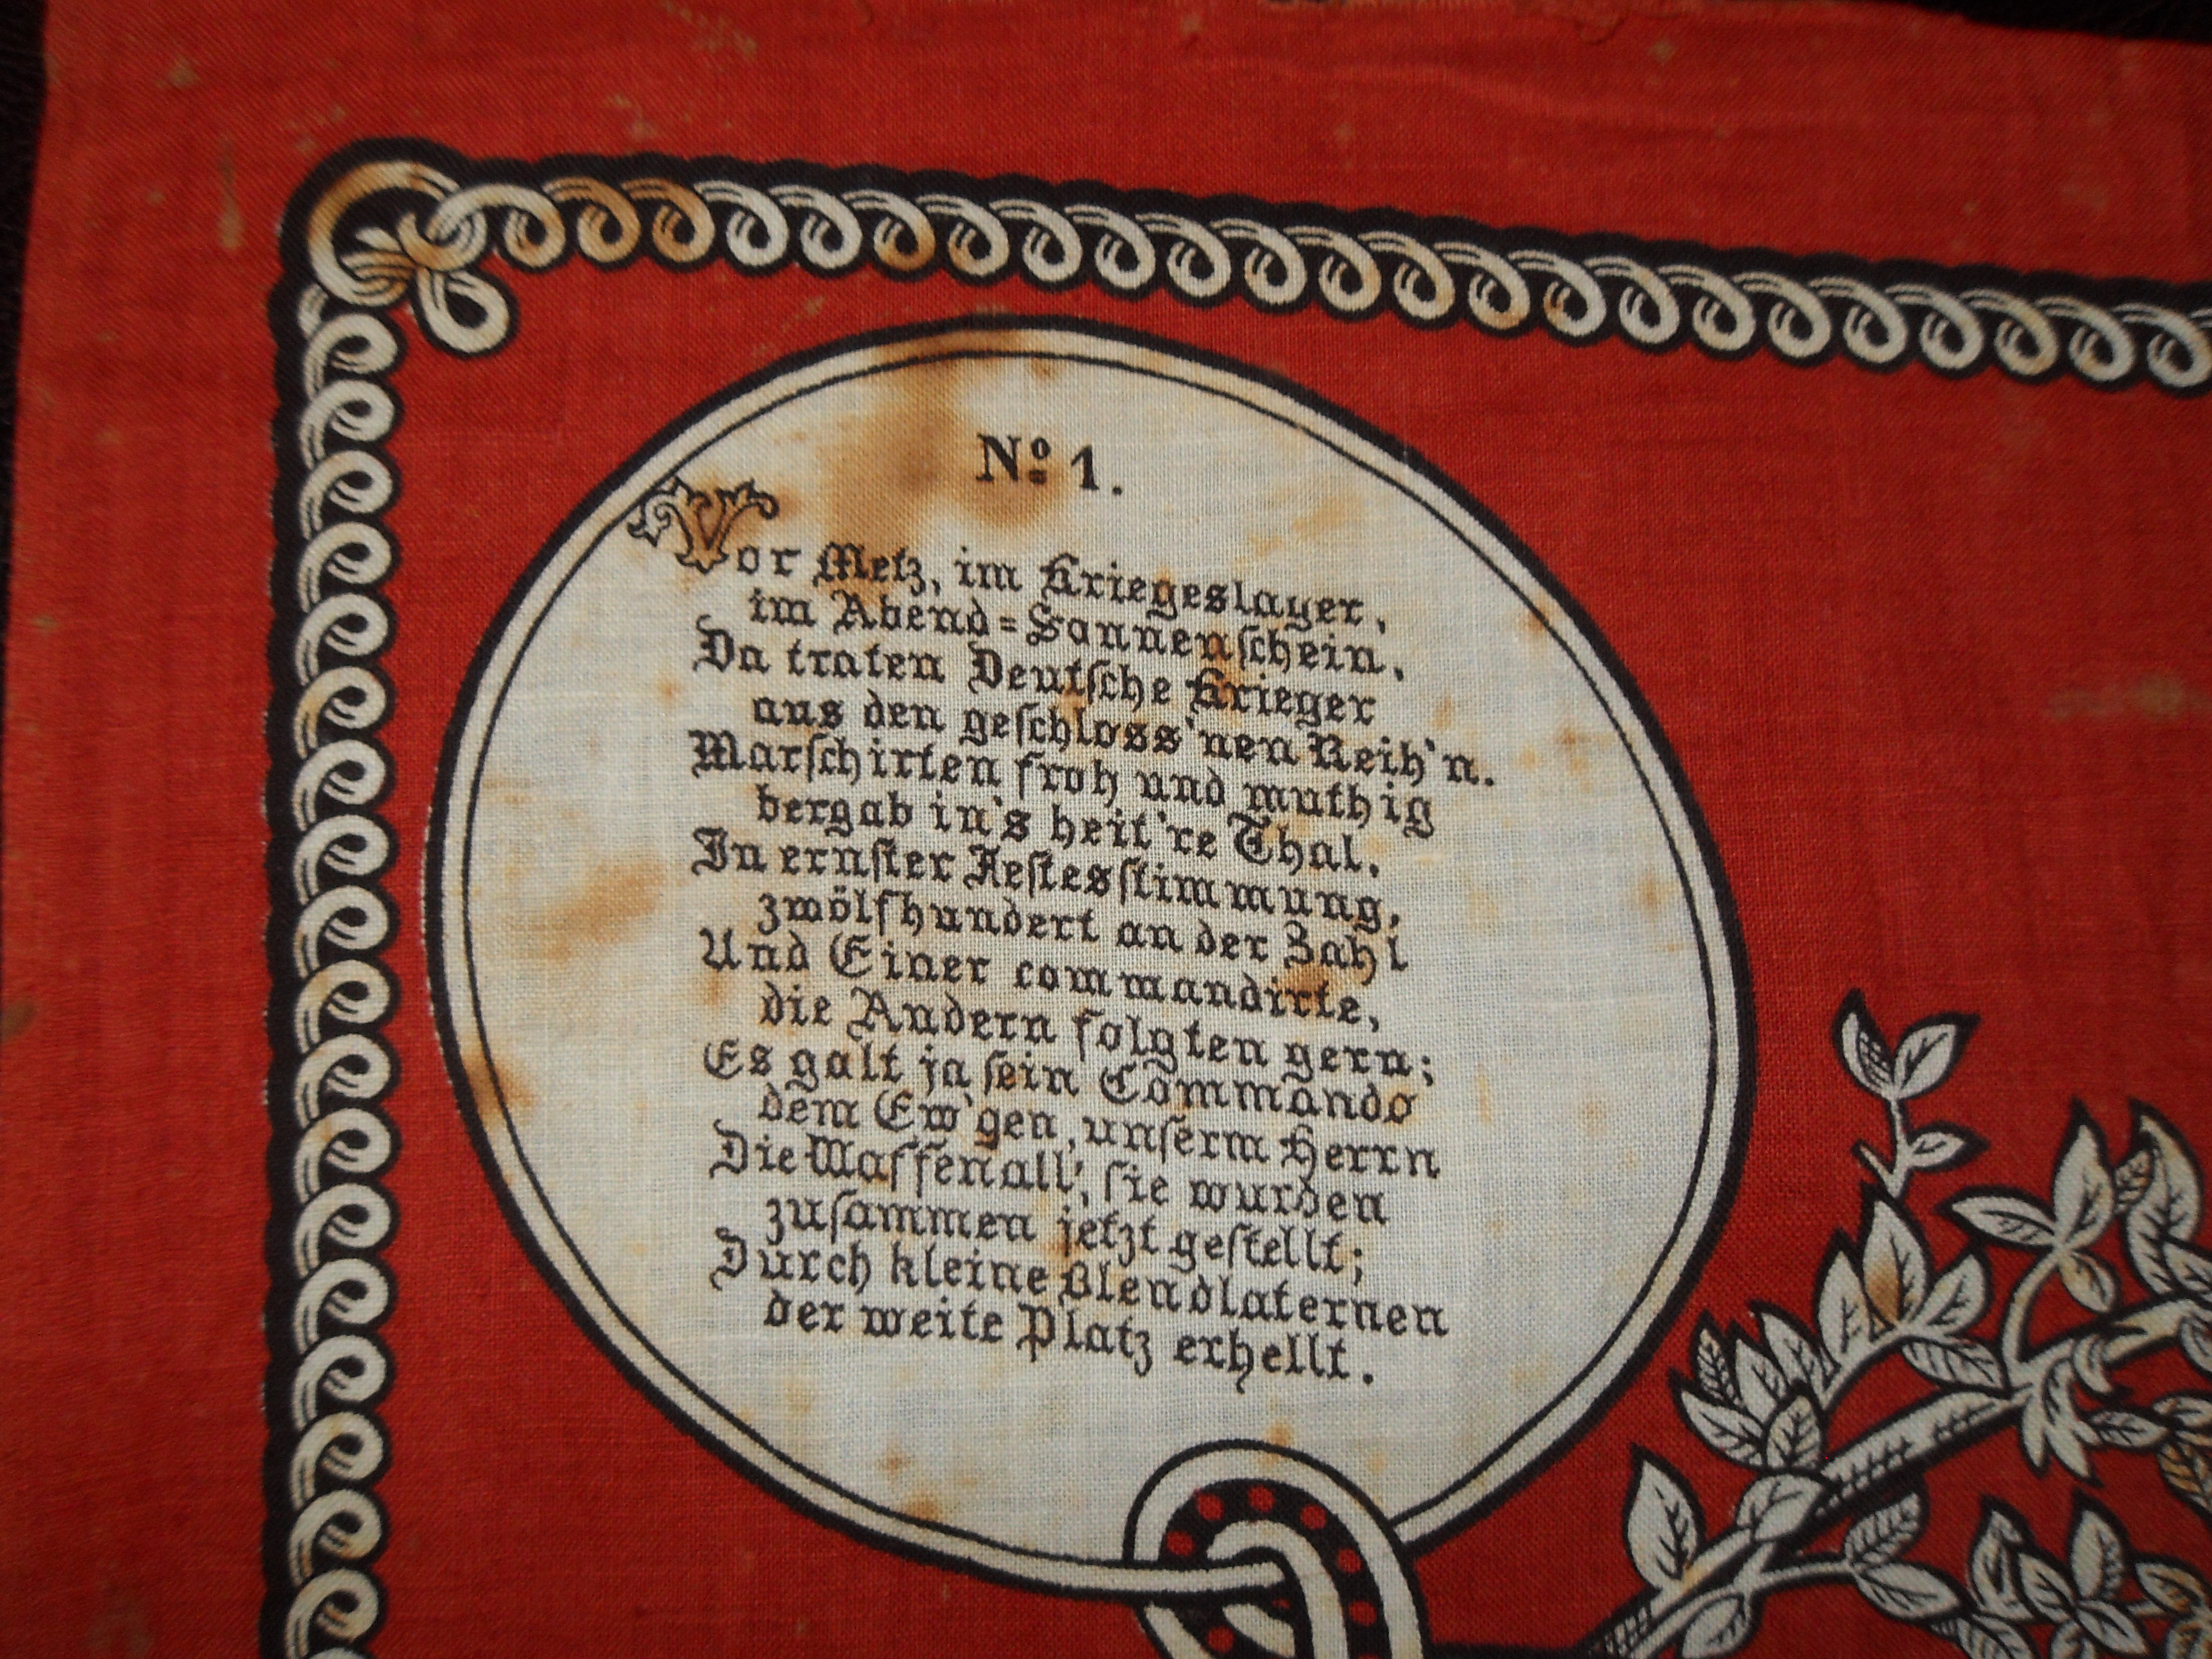 Nº 1.
Vor Metz, im Kriegeslager,
im Abend=Sonnenſchein,
Da traten Deutſche Krieger
aus den geſchloss'nen Reih'n.
Marſchirten froh und muthig
bergab in's heit're Thal,
In ernſter Feſtesſtimmung,
zwölfhundert an der Zahl
Und Einer commandirte,
die Andern folgten gern;
Es galt ja ſein Commando
dem Ew'gen, unſerm Herrn
Die Waffen all', ſie wurden
zuſammen jetzt geſtellt;
Durch kleine Blendlaternen
der weite Platz erhellt.